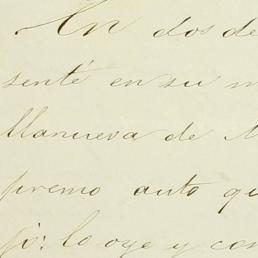 En dos de
senté en su m
llanueva de M
premo auto qu
jo: lo oyo y con